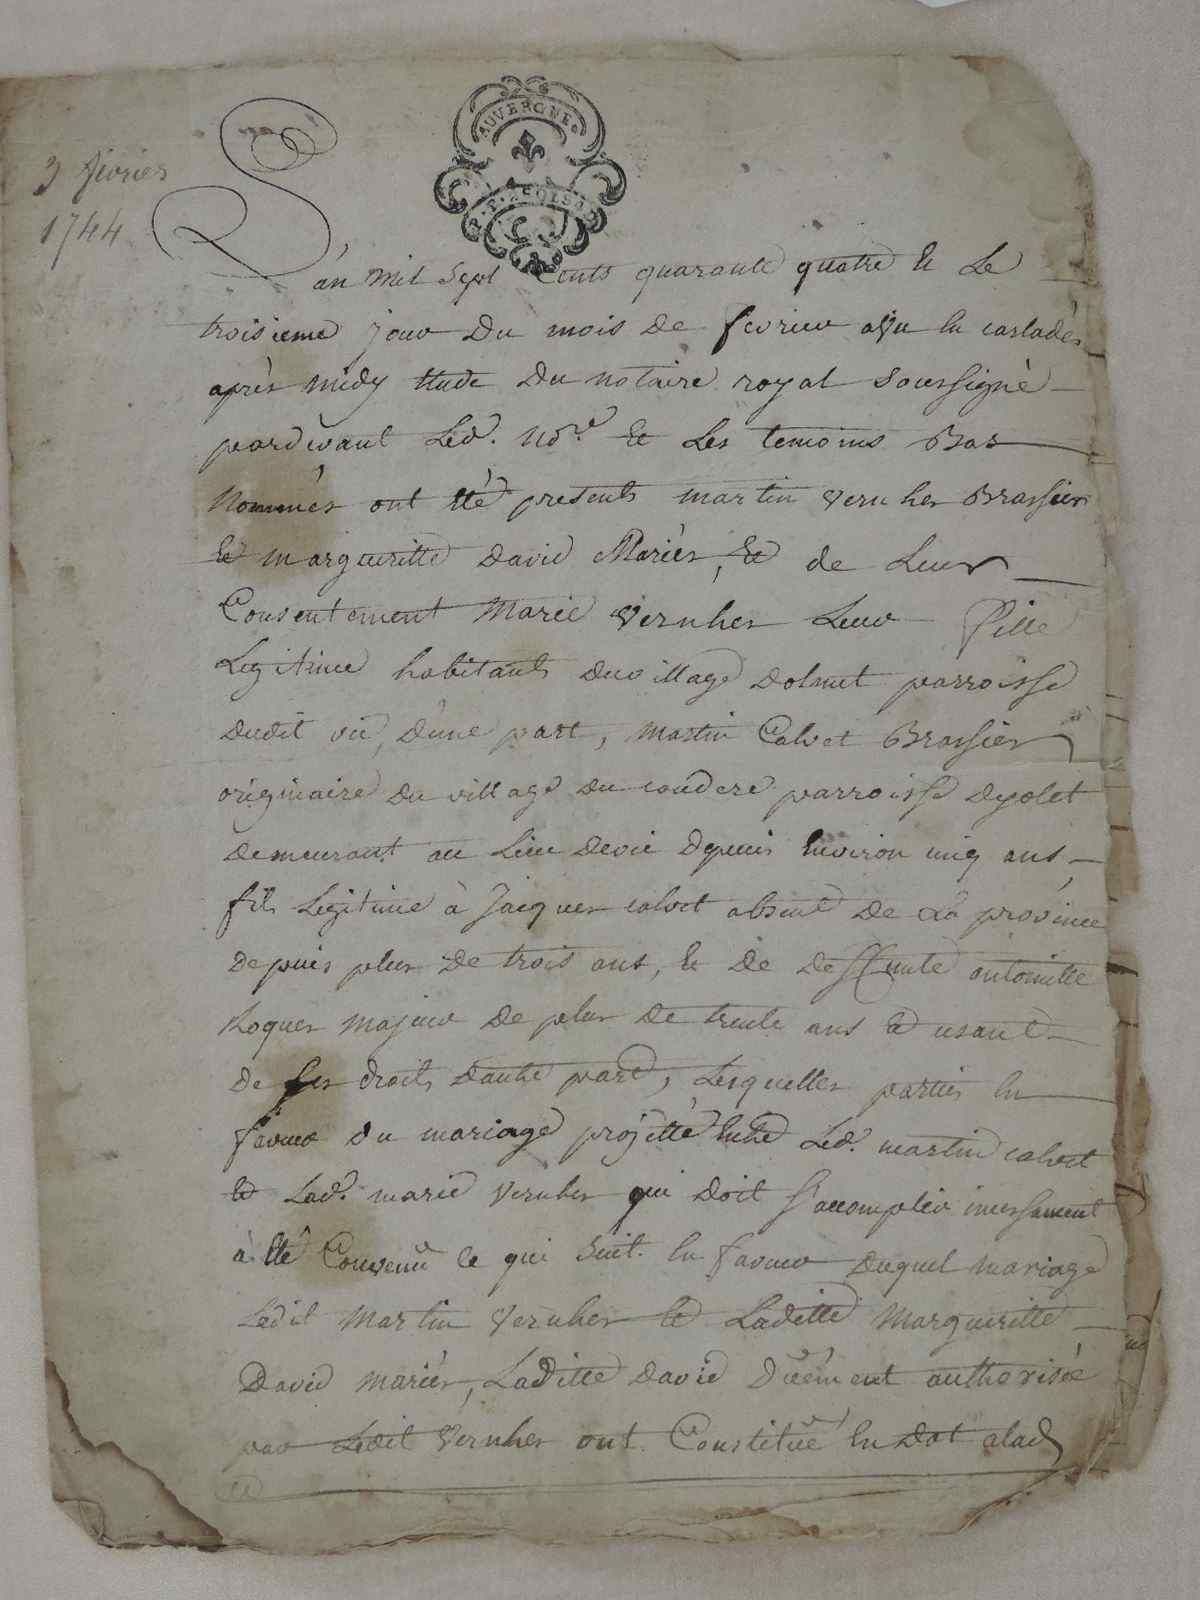 3 février
1744
AUVERGNE
L'an mil sept Cents quarante quatre et Le
troisieme jour du mois de fevrier a vic en carladés
après midy Etude du notaire royal soussigné
pardevant Led. no.re et Les temoins Bas
Nommés ont Eté presents martin vernher Brassier
et margueritte david Mariés, et de Leur
Consentement Marie vernher Leur fille
Legitime habitants du village dolmet parroisse
dudit vic, d'une part, martin Calvet Brassier
originaire du village du couderc parroisse dyolet
demeurant au Lieu de vic depuis Environ cinq ans
fils Legitime à Jacques calvet absent de La province
depuis plus de trois ans, et de deffunte antoinette
Roques majeur de plus de trente ans et usant
de ses droits dautre part, Lesquelles parties en
faveur du mariage projetté Entre Led. martin calvet
et Lad. marie vernher qui doit s'accomplir incessament
à Eté Convenû ce qui suit. En faveur duquel mariage
Ledit martin vernher et Laditte margueritte
David mariés, Laditte david düement authorisée
par Ledit vernher ont Constitué En dot alad